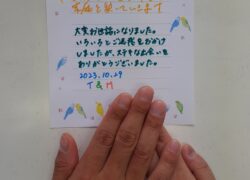 大変お世話になりました。
いろいろとご迷惑をおかけ
しましたが、ステキな出会いを
ありがとうございました。
2023.10.29
T & M